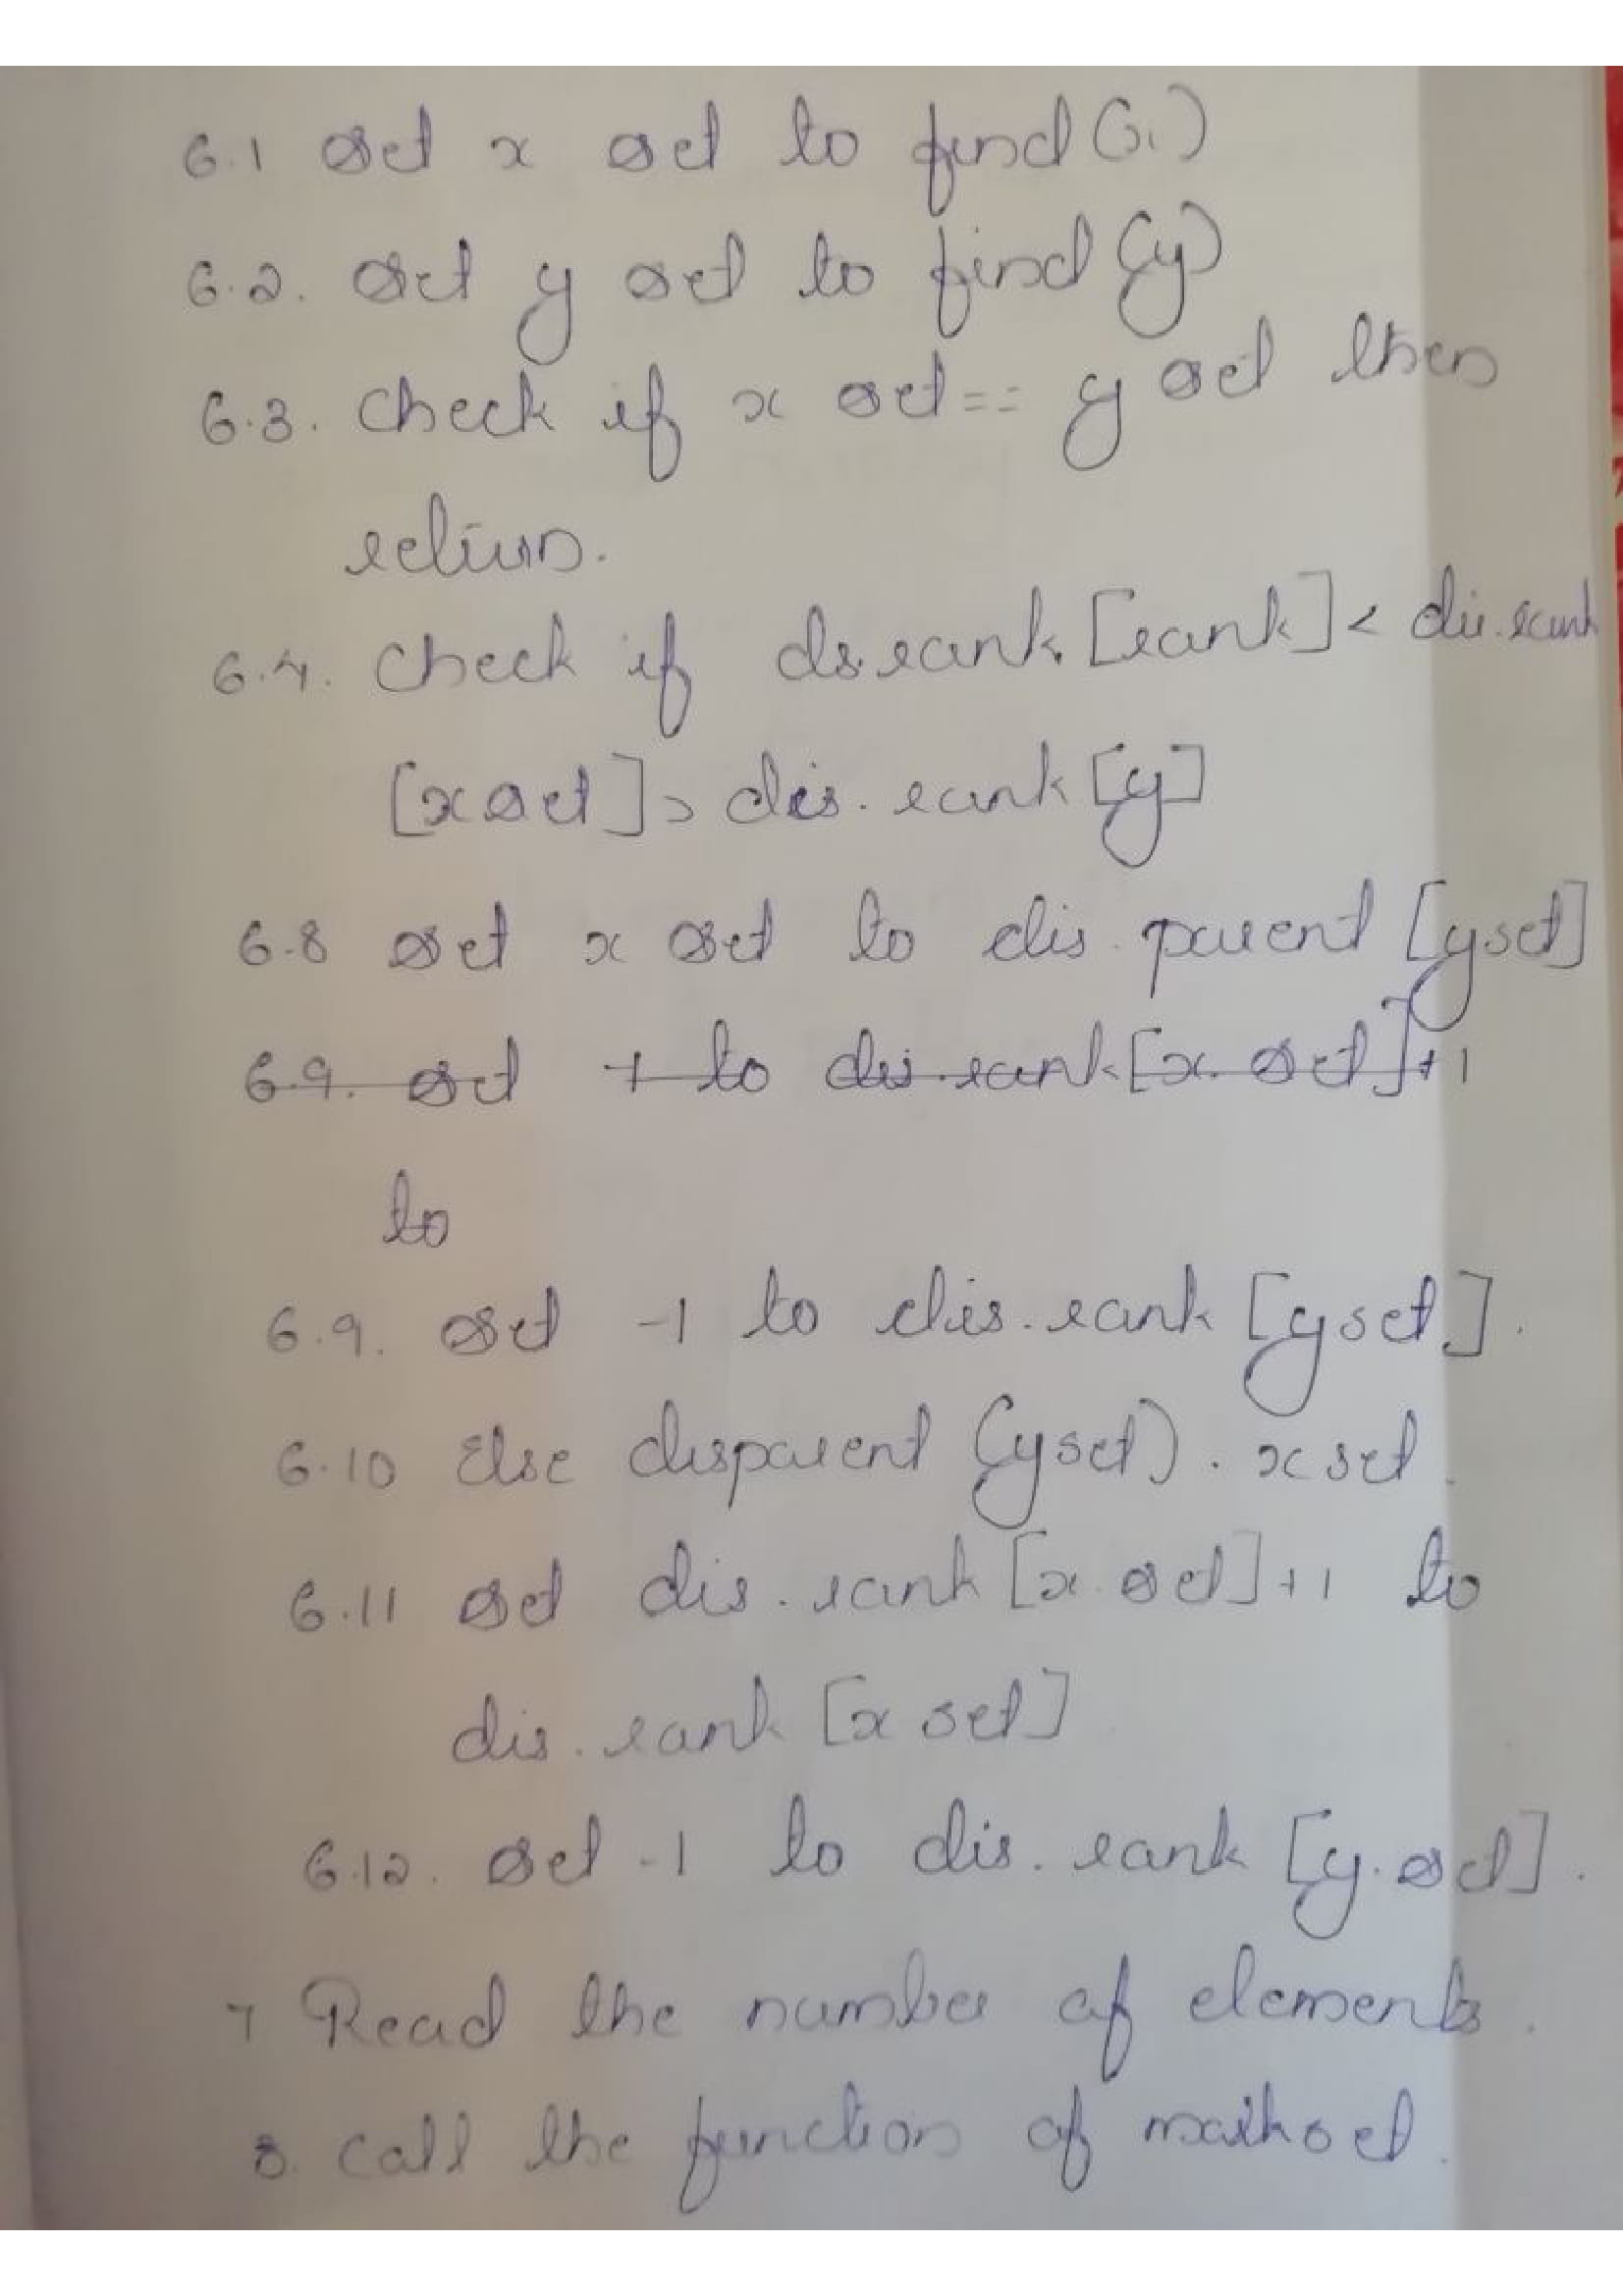 6.1 set x set to find(x)
6.2. set y set to find (y)
6.3. check if x set == y set then
return.
6.4. check if ds.rank. [rank] < dis.rank
[x set] > dis. rank [y]
6.8 set x set to dis. parent [yset]
6.9. set + to dis.rank [x. set]+1
to
6.9. set -1 to dis.rank [yset].
6.10 Else disparent (yset). xset.
6.11 set dis. rank [x. set]+1 to
dis. rank [x set]
6.12. set -1 to dis. rank [y. set].
7 Read the number of elements.
8. call the function of makset.